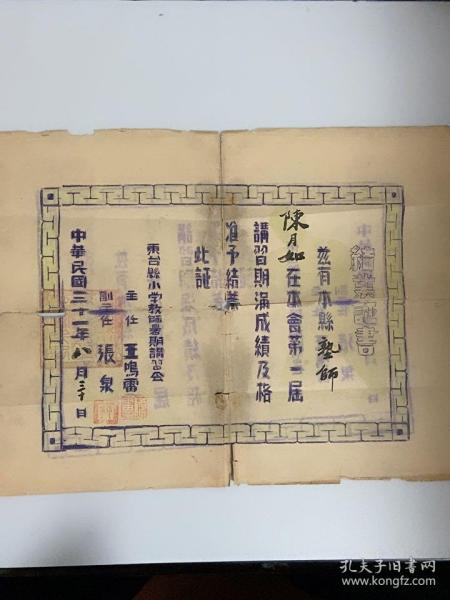 結業證書
茲有本縣塾師
陳月如在本會第一屆
講習期滿成績及格
准予結業
此証
東台縣小学教師暑期講習会
主任 王鳴雷
副主任 張泉
中華民國三十一年八月三十日
孔夫子旧书网
www.kongfz.com